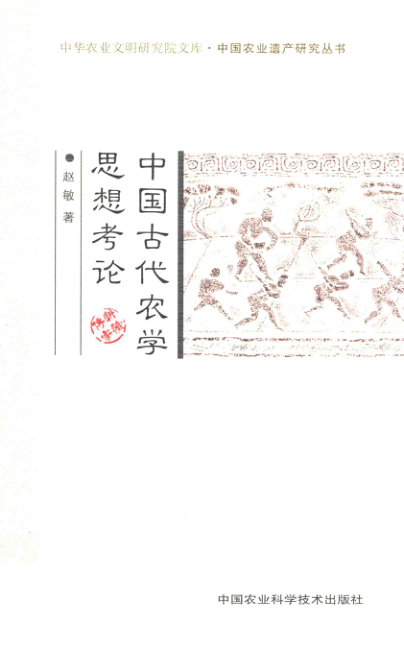 中华农业文明研究院文库·中国农业遗产研究丛书
中国古代农学
思想考论
●赵敏 著
中国农业科学技术出版社